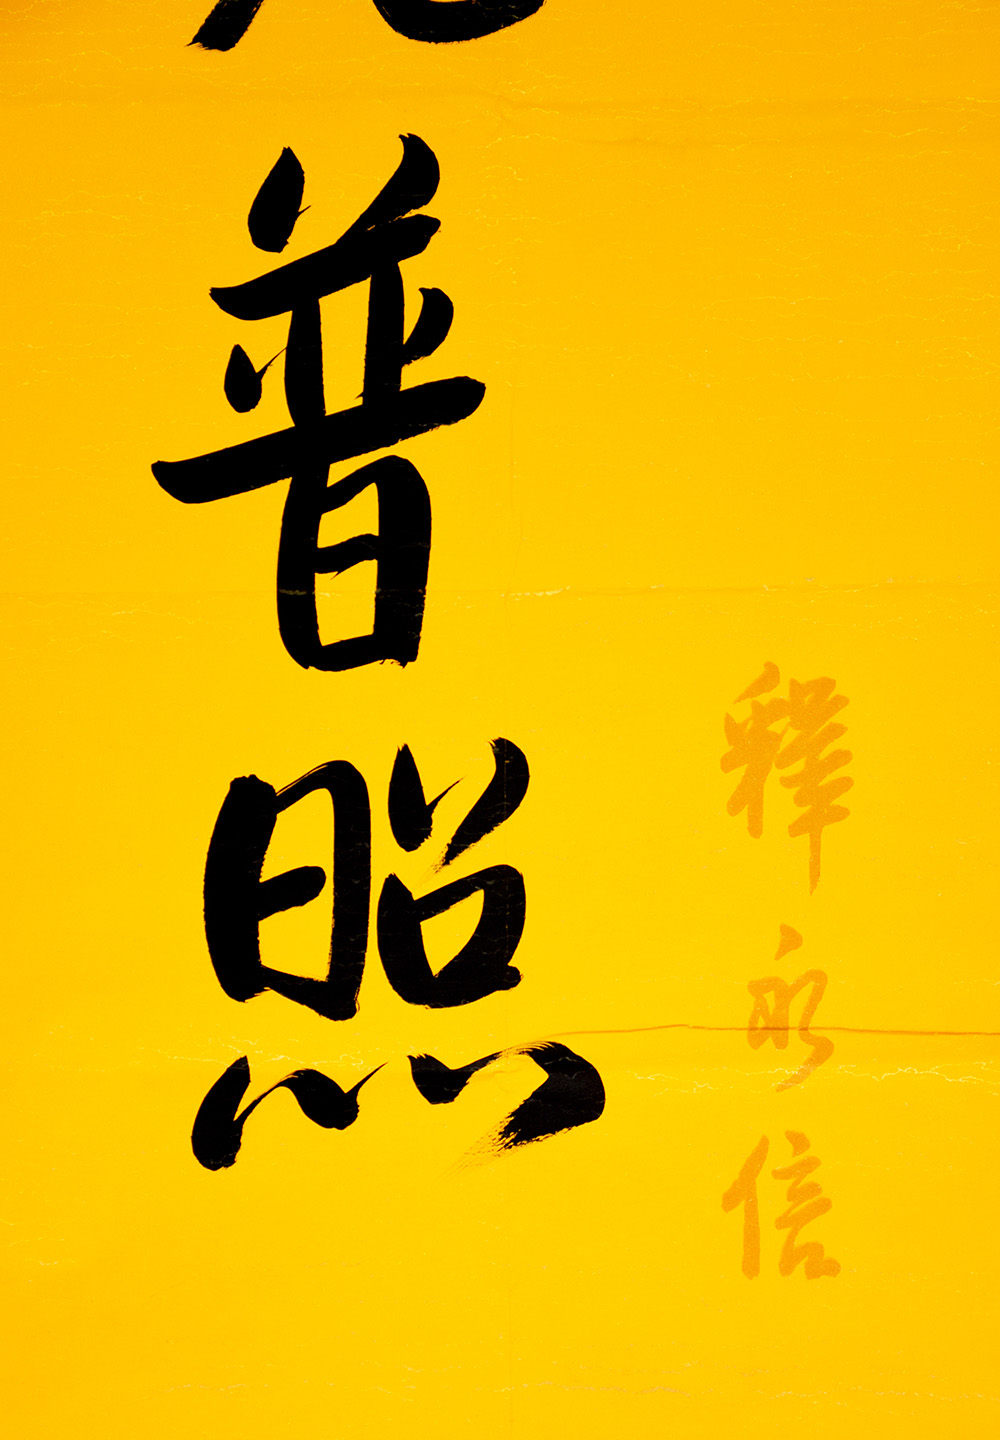 普照
釋永信